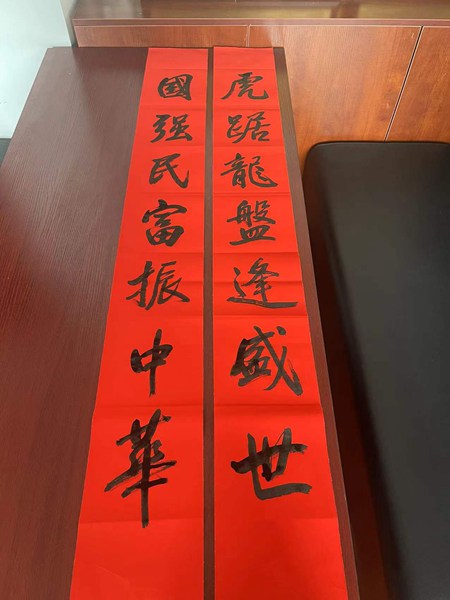 虎踞龍盤逢盛世
國强民富振中華